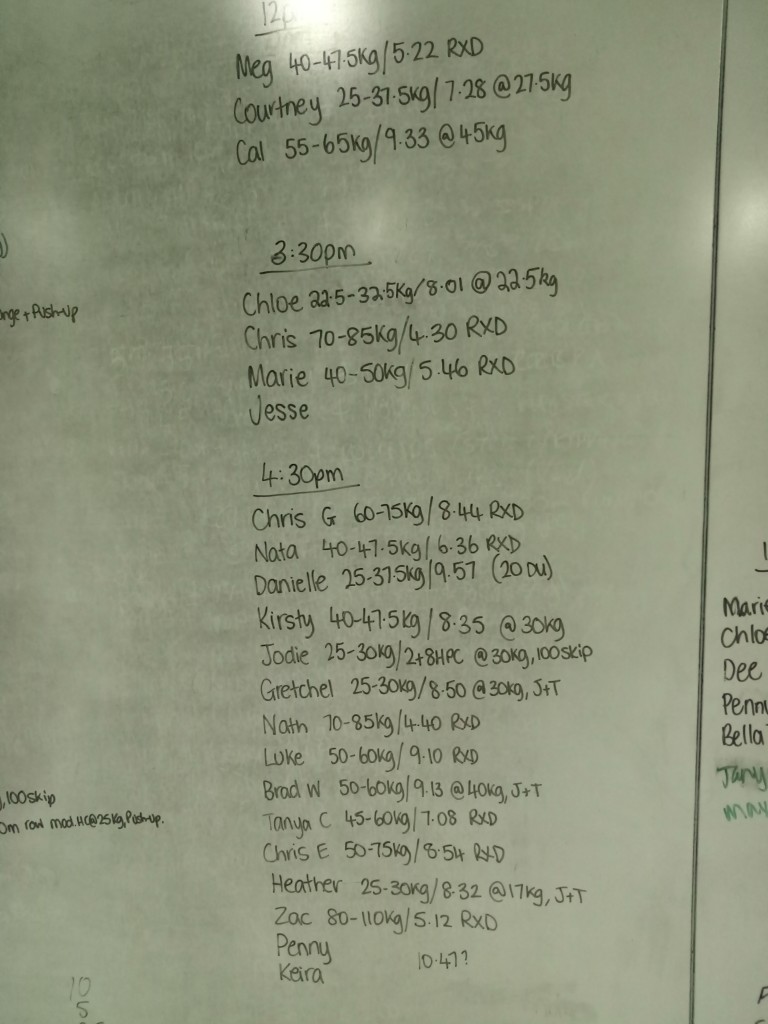 12p
Meg 40-47.5kg/5.22 RXD
Courtney 25-37.5kg/7.28 @27.5kg
Cal 55-65kg/9.33 @45kg
3:30pm
Chloe 22.5-32.5kg/8.01 @22.5kg
+Push-Up
Chris 70-85kg/4.30 RXD
Marie 40-50kg/5.46 RXD
Jesse
4:30pm
Chris G 60-75kg/8.44 RXD
Nata 40-47.5kg/6.36 RXD
Danielle 25-37.5kg/9.57 (20 DU)
Kirsty 40-47.5kg/8.35 @30kg
Jodie 25-30kg/2+8HPC @30kg,100skip
Gretchel 25-30kg/8.50 @30kg, J+T
Nath 70-85kg/4.40 RXD
Luke 50-60kg/9.10 RXD
Brad W 50-60kg/9.13 @40kg, J+T
,100skip
Tanya C 45-60kg/7.08 RXD
0m row mod. HC@25kg, Push-up.
Chris E 50-75kg/8.54 RXD
Heather 25-30kg/8.32 @17kg, J+T
Zac 80-110kg/5.12 RXD
Penny
10.47?
Keira
10
5
Marie
Chloe
Dee
Penny
Bella